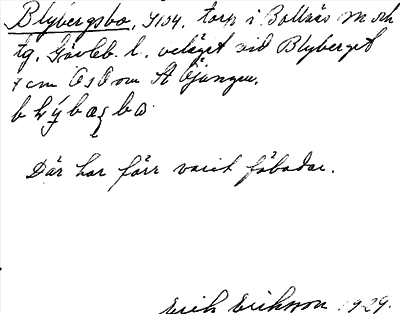 Blybergsbo, G154, torp i Bollnäs sn och
tg. Gävleb. l. veläget vid Blyberget
7 cm OsO om St Öjungen.
Där har förr varit fäbodar.
Erik Eriksson 1929.